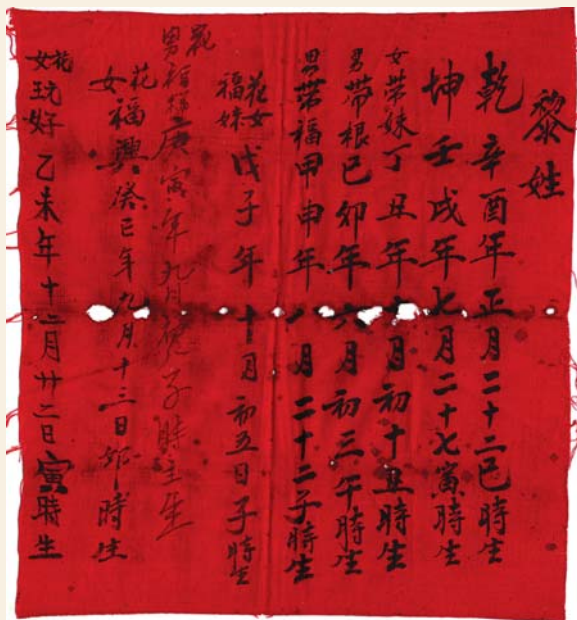 黎姓
乾辛酉年正月二十二巳時生
坤壬戌年七月二十七寅時生
女帶妹丁丑年十月初十丑時生
男帶根己卯年六月初三午時生
男帶福甲申年八月二十二子時生
花女福妹戊子年十月初五日子時生
花男福 庚寅年九月 子時生
花女福興癸巳年九月十三日卯時生
花女 好乙未年十二月廿二日寅時生